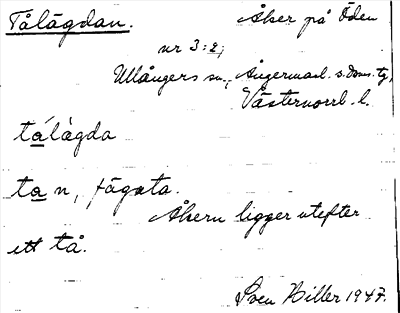 Tålägdan. Åker på Öden
nr 3:2,
Ullångers sn., Ångermanl. s. doms. tg,
Västernorrl. l.
tálàgda
ta n, fägata.
Åkern ligger utefter
ett tå.
Sven Hiller 1947.